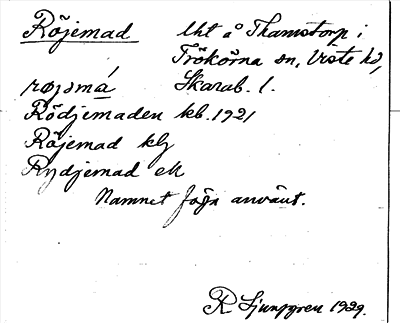 Röjemad lht å Thamstorp i
Trökörna sn, Viste hd,
røjǝmá Skarab. l.
Rödjemaden kb. 1921
Röjemad klj
Rydjemad ek
Namnet föga använt.
R Ljunggren 1929.